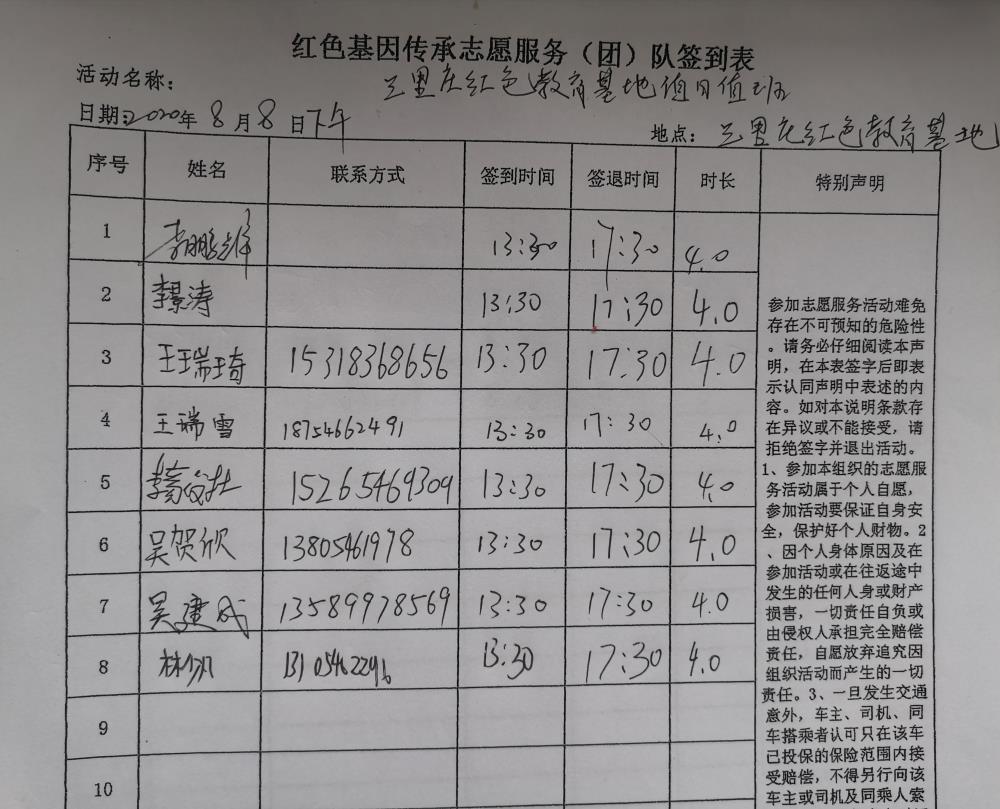 红色基因传承志愿服务（团）队签到表
活动名称： 三里庄红色教育基地值日值班
日期：2020年8月8日下午 地点： 三里庄红色教育基地
序号 姓名 联系方式 签到时间 签退时间 时长 特别声明
1 13:30 17:30 4.0
2 李景涛 13:30 17:30 4.0
3 王瑞琦 15318368656 13:30 17:30 4.0
4 王瑞雪 18754662491 13:30 17:30 4.0
5 15265469309 13:30 17:30 4.0
6 吴贺欣 13805461978 13:30 17:30 4.0
7 吴建成 13589978569 13:30 17:30 4.0
8 13105462296 13:30 17:30 4.0
9
10
参加志愿服务活动难免
存在不可预知的危险性
。请务必仔细阅读本声
明，在本表签字后即表
示认同声明中表述的内
容。如对本说明条款存
在异议或不能接受，请
拒绝签字并退出活动。
1、参加本组织的志愿服
务活动属于个人自愿，
参加活动要保证自身安
全，保护好个人财物。2
、因个人身体原因及在
参加活动或在往返途中
发生的任何人身或财产
损害，一切责任自负或
由侵权人承担完全赔偿
责任，自愿放弃追究因
组织活动而产生的一切
责任。3、一旦发生交通
意外，车主、司机、同
车搭乘者认可只在该车
已投保的保险范围内接
受赔偿，不得另行向该
车主或司机及同乘人索